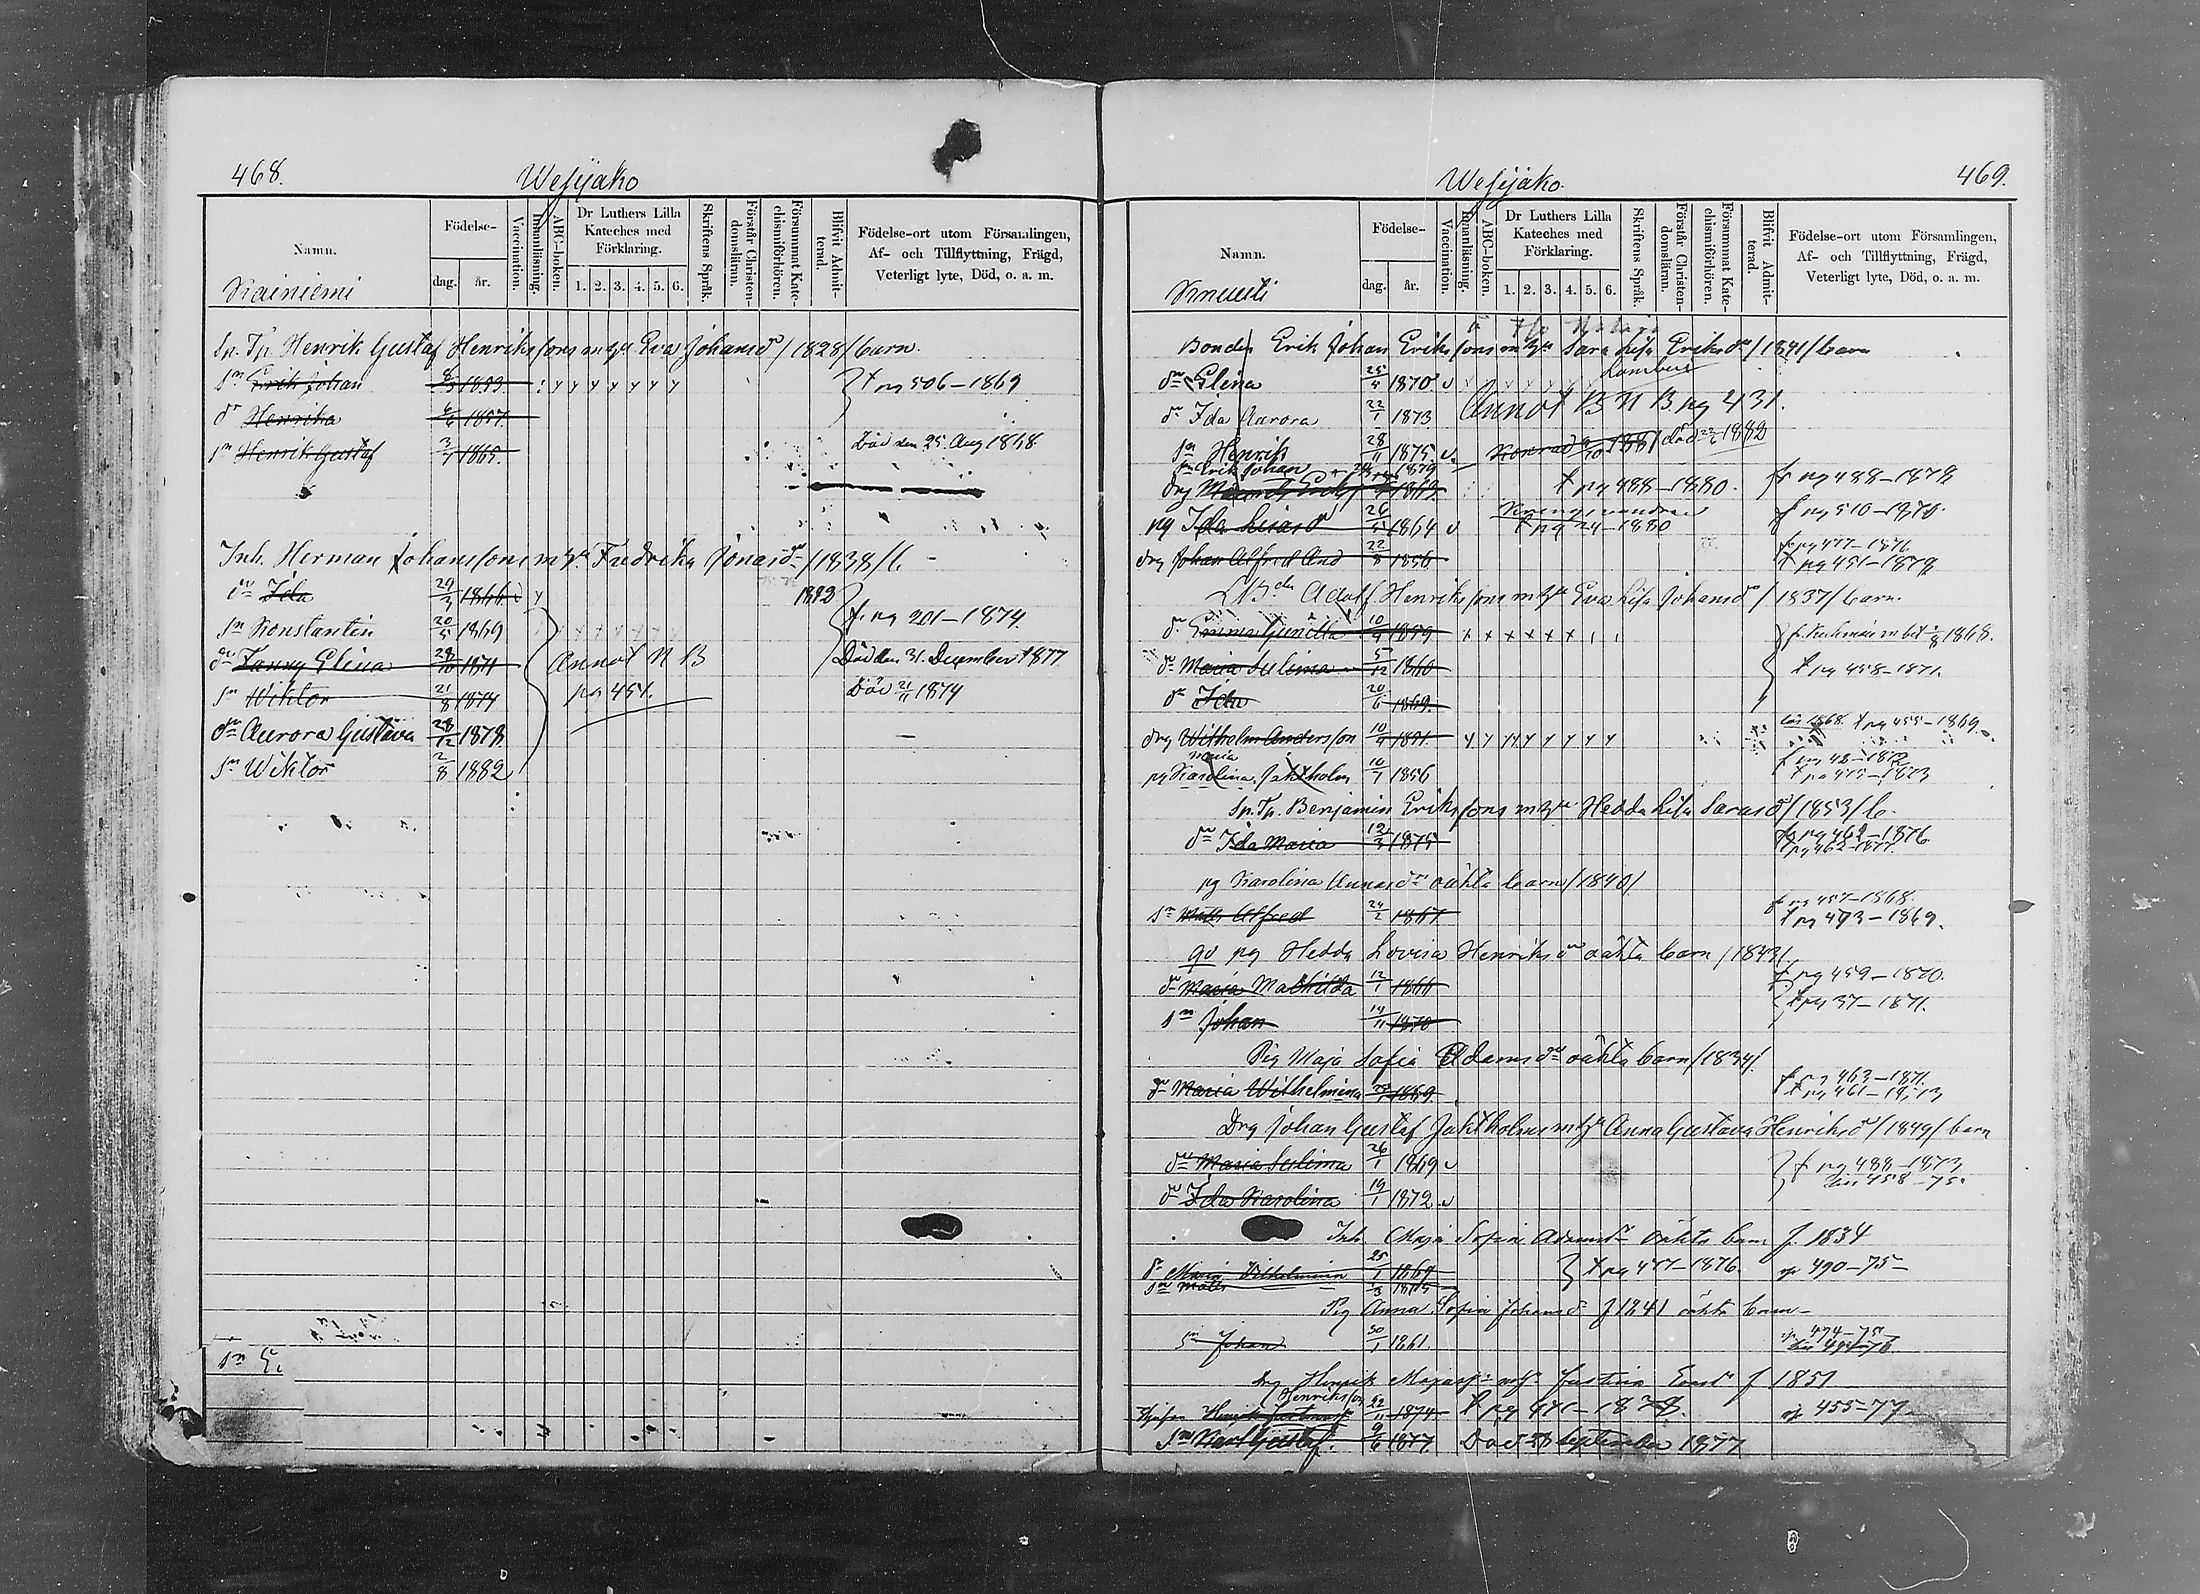 468. Wesijako
Namn. Födelse- dag. år. Vaccination. Innanläsning. ABC-boken. Dr Luthers Lilla Kateches med Förklaring. 1. 2. 3. 4. 5. 6. Skriftens Språk. Förstår Christendomsläran. Försummat Katechismiförhören. Blifvit Admitterad. Födelse-ort utom Församlingen, Af- och Tillflyttning, Frägd, Veterligt lyte, Död, o. a. m.
Kainiemi
Sp. Tp. Henrik Gustaf Henrikssons m h:u Eva Johansdr /1828/ barn
sn Erik Johan 1853 t pg 506-1869
dr Henrika 1857
sn Henrik Gustaf 3/4 1865. Död den 25 Aug 1868
Inh. Herman Johanssons m h:u Fredrika Jonasdr /1838/ b
dr Ida 29/3 1866 1882
sn Konstantin 20/5 1869 f. pg 201-1874
dr Fanny Elina 28/10 1871 Annot N B Död den 31 December 1877
sn Wiktor 21/8 1874 pg 451. Död 21/11 1874
dr Aurora Gustava 28/12 1878
sn Wiktor 2/8 1882
sn
Wesijako. 469.
Namn. Födelse- dag. år. Vaccination. Innanläsning. ABC-boken. Dr Luthers Lilla Kateches med Förklaring. 1. 2. 3. 4. 5. 6. Skriftens Språk. Förstår Christendomsläran. Försummat Katechismiförhören. Blifvit Admitterad. Födelse-ort utom Församlingen, Af- och Tillflyttning, Frägd, Veterligt lyte, Död, o. a. m.
Knuuti
Bonden Erik Johan Erikssons m h:u Sara Lisa Eriksdr /1841/ barn
dr Elina 25/4 1870
dr Ida Aurora 22/1 1873 Annot B N B pg 431.
sn Henrik 28/11 1875 Konrad 1881 död 1882
sn Erik Johan 1879
drg 1863 t pg 488-1880. fr pg 488-1879
pg Ida Lisasdr 26/5 1864 Kringvandrar t pg 24-1880 f pg 510-1870.
drg Johan Alfred And 22/8 1856 fr pg 477-1876 t pg 451-1879
Adolf Henrikssons m h:u Eva Lisa Johansdr /1837/ barn.
dr Emma Gunilla 10/4 1859 1868.
dr Maria Selima 5/12 1860 t pg 458-1871.
dr Ida 20/6 1869.
drg Wilhelm Andersson 10/4 1851. 1868. t pg 455-1869.
Maria
pg Karolina Jaktholm 16/7 1856 f pg 42-1872 t pg 475-1873
Sp. Tp. Benjamin Erikssons m h:u Hedda Lisa Sarasdr /1853/ b.
dr Ida Maria 12/3 1875 fr pg 462-1876 t pg 462-1877.
pg Karolina Annasdr oäkta barn /1840/
sn Matts Alfred 24/2 1867 f pg 457-1868. t pg 493-1869.
qv pg Hedda Lovisa Henriksdr oäkta barn /1843/
dr Maria Mathilda 12/1 1866 f pg 459-1870.
sn Johan 14/11 1870 t pg 37-1871.
Pig Maja Sofia Adamsdr oäkta barn /1834/.
dr Maria Wilhelmina 1869. f pg 463-1871. t pg 461-1873
Drg Johan Gustaf Jaktholms m h:u Anna Gustava Henriksdr /1849/ barn
dr Maria Selima 26/1 1869 f pg 488-1873
dr Ida Karolina 19/1 1872 458-75.
Inh. Maja Sofia Adamsdr oäkta barn f. 1834
dr Maria Vilhelmina 25/1 1869 t pg 477-1876. 490-75
sn Matts 1875
Pig Anna Sofia Johansdr f 1841 oäkta barn
sn Johan 30/1 1861. 474-75 494-76
drg Henrik Majass m h Justina Evasdr f 1851
Henriksson 1874 t pg 471-1878. 455-77
sn Karl Gustaf. 9/6 1877 Död 28 September 1877